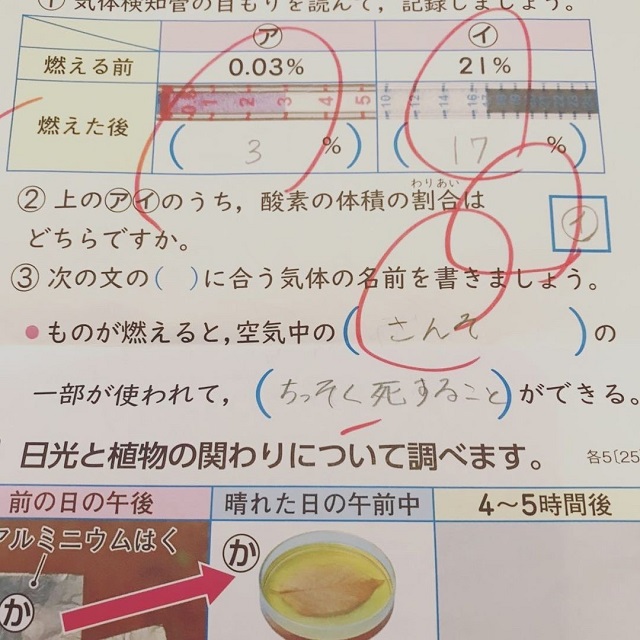 ① 気体検知管の目もりを読んで，記録しましょう。
㋐ ㋑
燃える前 0.03% 21%
燃えた後 (3%) (17%)
わりあい
② 上の㋐㋑のうち，酸素の体積の割合は
どちらですか。
㋑
③ 次の文の( )に合う気体の名前を書きましょう。
● ものが燃えると，空気中の(さんそ)の
一部が使われて，(ちっそく死すること)ができる。
日光と植物の関わりについて調べます。 各5〔25
前の日の午後 晴れた日の午前中 4〜5時間後
アルミニウムはく
か
か